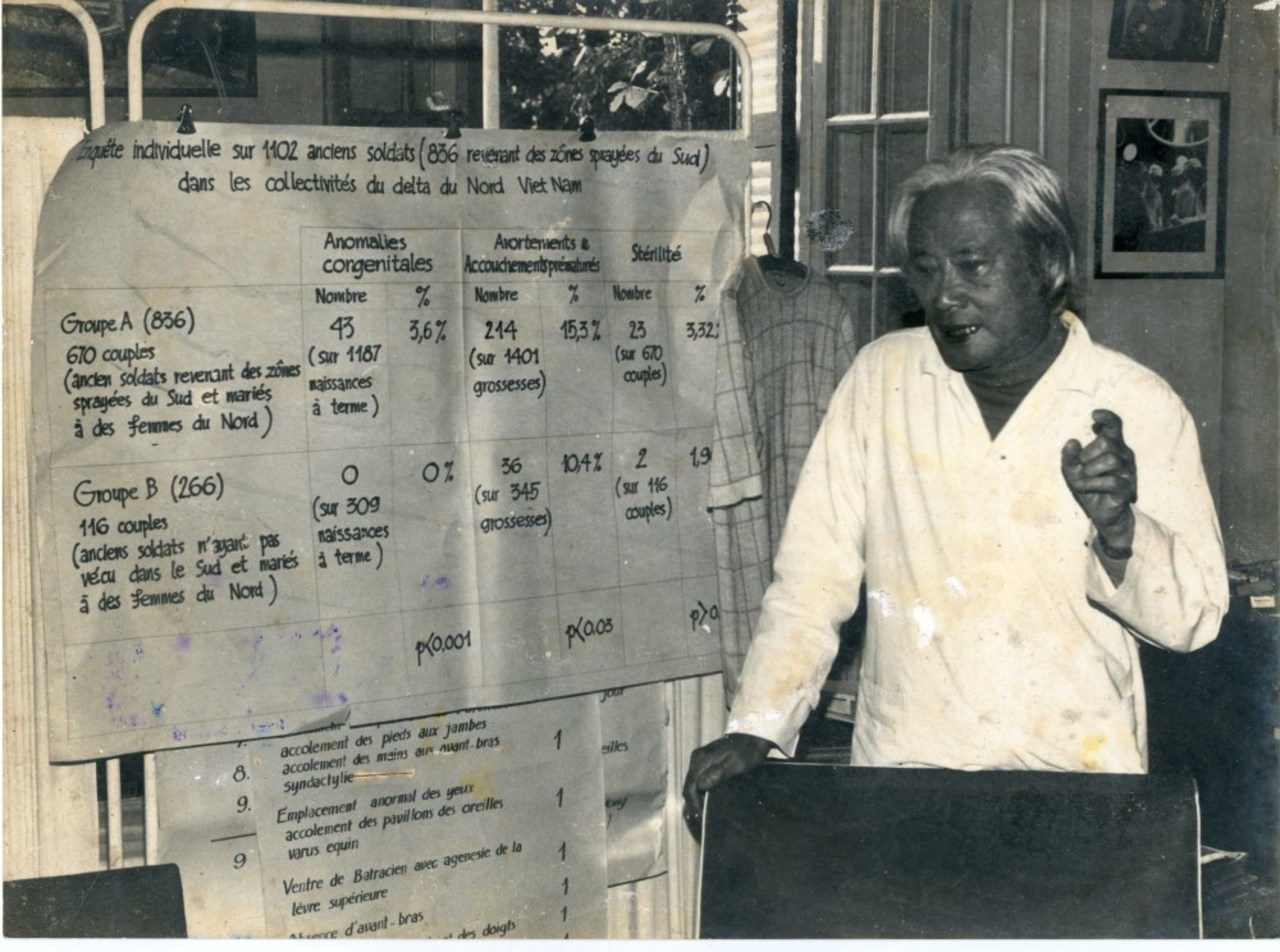 Enquête individuelle sur 1102 anciens soldats (836 revenant des zônes sprayées du Sud)
dans les collectivités du delta du Nord Viet Nam
Anomalies
congenitales
Avortements &
Accouchements prématurés
Stérilité
Nombre % Nombre % Nombre %
Groupe A (836)
670 couples
(ancien soldats revenant des zônes
sprayées du Sud et mariés
à des femmes du Nord)
43
(sur 1187
naissances
à terme)
3,6%
214
(sur 1401
grossesses)
15,3%
23
(sur 670
couples)
3,32
Groupe B (266)
116 couples
(anciens soldats n'ayant pas
vécu dans le Sud et mariés
à des femmes du Nord)
0
(sur 309
naissances
à terme)
0%
36
(sur 345
grossesses)
10,4%
2
(sur 116
couples)
1,9
p<0,001
p<0,03
p>0
accolement des pieds aux jambes
8. accolement des mains aux avant-bras 1
syndactylie
9. Emplacement anormal des yeux 1
accolement des pavillons des oreilles
varus equin
9 Ventre de Batracien avec agenesie de la 1
lèvre supérieure
Absence d'avant-bras 1
des doigts 1
eilles